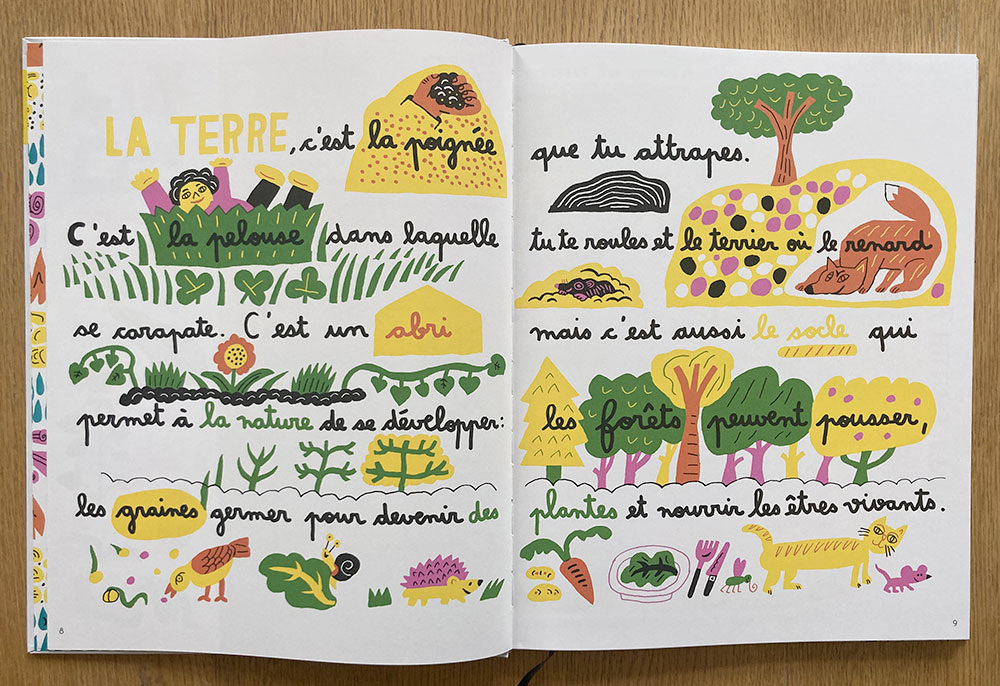 LA TERRE, c'est la poignée que tu attrapes.
C'est la pelouse dans laquelle tu te roules et le terrier où le renard
se carapate. C'est un abri mais c'est aussi le socle qui
permet à la nature de se développer: les forêts peuvent pousser,
les graines germer pour devenir des plantes et nourrir les êtres vivants.
8
9